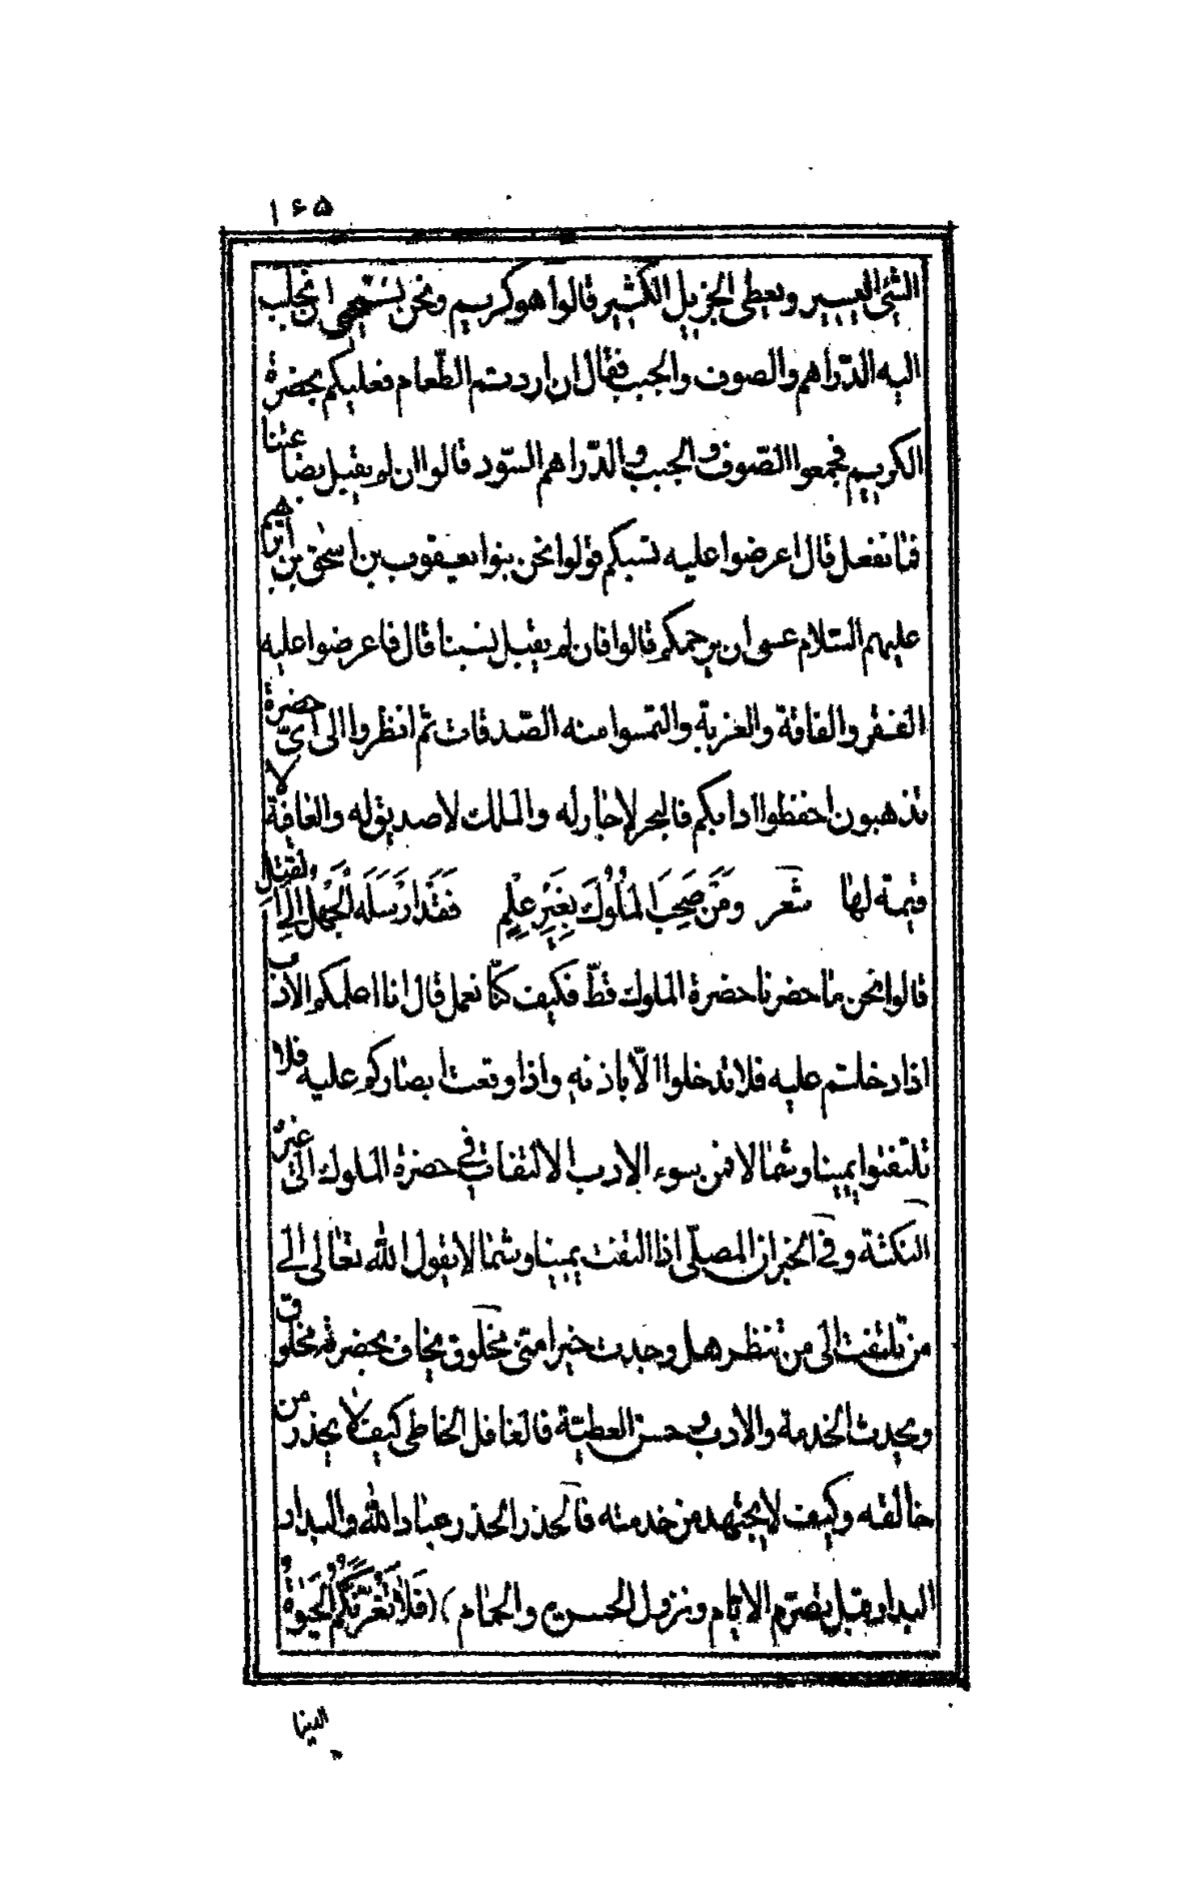 ۱۶۵
الشئ اليسير ويعطى الجزيل الكثير قالوا هو كريم ونحن نستحيى ان نجلب
اليه الدّراهم والصوف والجبب فقال ان اردتم الطّعام فعليكم بحضرة
الكريم فجمعوا الصّوف والجبب والدّراهم السّود قالوا ان لم يقبل بضاعتنا
فما نفعل قال اعرضوا عليه نسبكم قولوا نحن بنوا يعقوب بن اسحق بن ابرهيم
عليهم السّلام عسى ان يرحمكم قالوا فان لم يقبل نسبنا قال فاعرضوا عليه
الفقر والفاقة والغربة والتمسوا منه الصّدقات ثم انظروا الى اىّ حضرة
تذهبون احفظوا ادابكم فالبحر لا جار له والملك لا صديق له والعافية لا
قيمة لها شعر وَمَن صَحِبَ المُلُوكَ بِغَيرِ عِلْمٍ فَقَدْ ارْسَلَه الْجَهْلُ اِلَى القِتَالِ
قالوا نحن ما حضرنا حضرة الملوك قطّ فكيف كنّا نعمل قال انا اعلمكم الادب
اذا دخلتم عليه فلا تدخلوا الّا باذنه واذا وقعت ابصاركم عليه فلا
تلتفتوا يمينا وشمالا فمن سوء الادب الالتفات فى حضرة الملوك الى غير
النكتة وفى الخبر ان المصلّى اذا التفت يمينا وشمالا يقول الله تعالى الى
من تلتفت الى من تنظر هل وجدت خيرا منّى مخلوق يخاف بحضرة مخلوق
ويجدث الخدمة والادب وحسن العطيّة فالغافل الخاطى كيف لا يحذر من
خالقه وكيف لا يجتهد من خدمته فالحذر الحذر عباد الله والبدار
البدار قبل تصرّم الايّام ونزول الحسرة والحمام (فَلَا تَغُرَّنَّكُمُ الْحَيٰوةُ
الدنيا